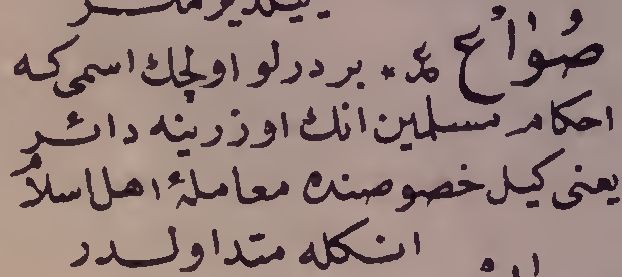 صُوَاع ع م٭ بر درلو اولچك اسمى كه
احكام مسلمين انك اوزرينه دائر
يعنى كيل خصوصنده معاملهٔ اهل اسلام
انكله متداولدر